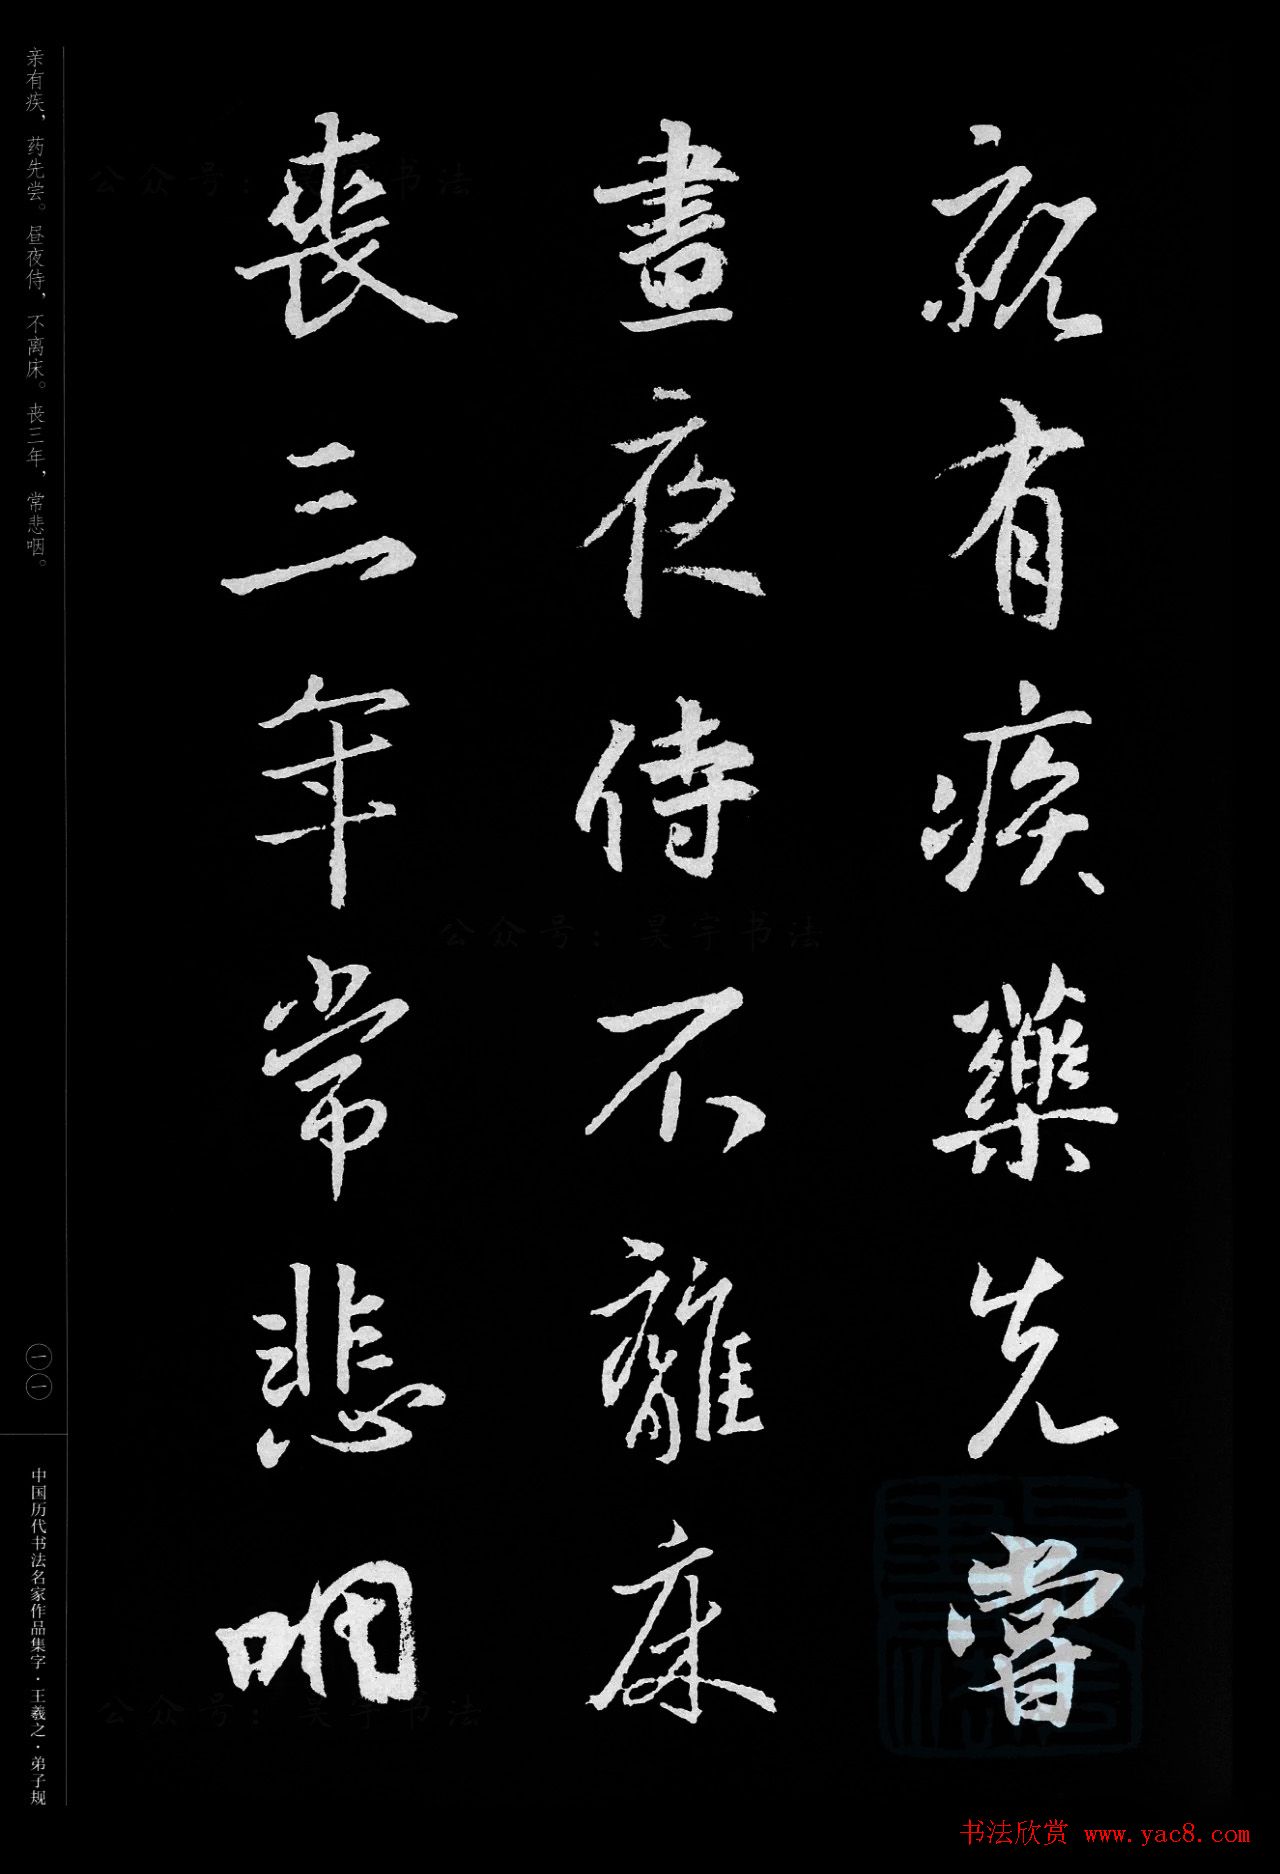 親有疾藥先嘗
晝夜侍不離床
喪三年常悲咽
亲有疾，药先尝。昼夜侍，不离床。丧三年，常悲咽。
一一
中国历代书法名家作品集字·王羲之·弟子规
公众号：昊宇书法
公众号：昊宇书法
公众号：昊宇书法
书法欣赏 www.yac8.com